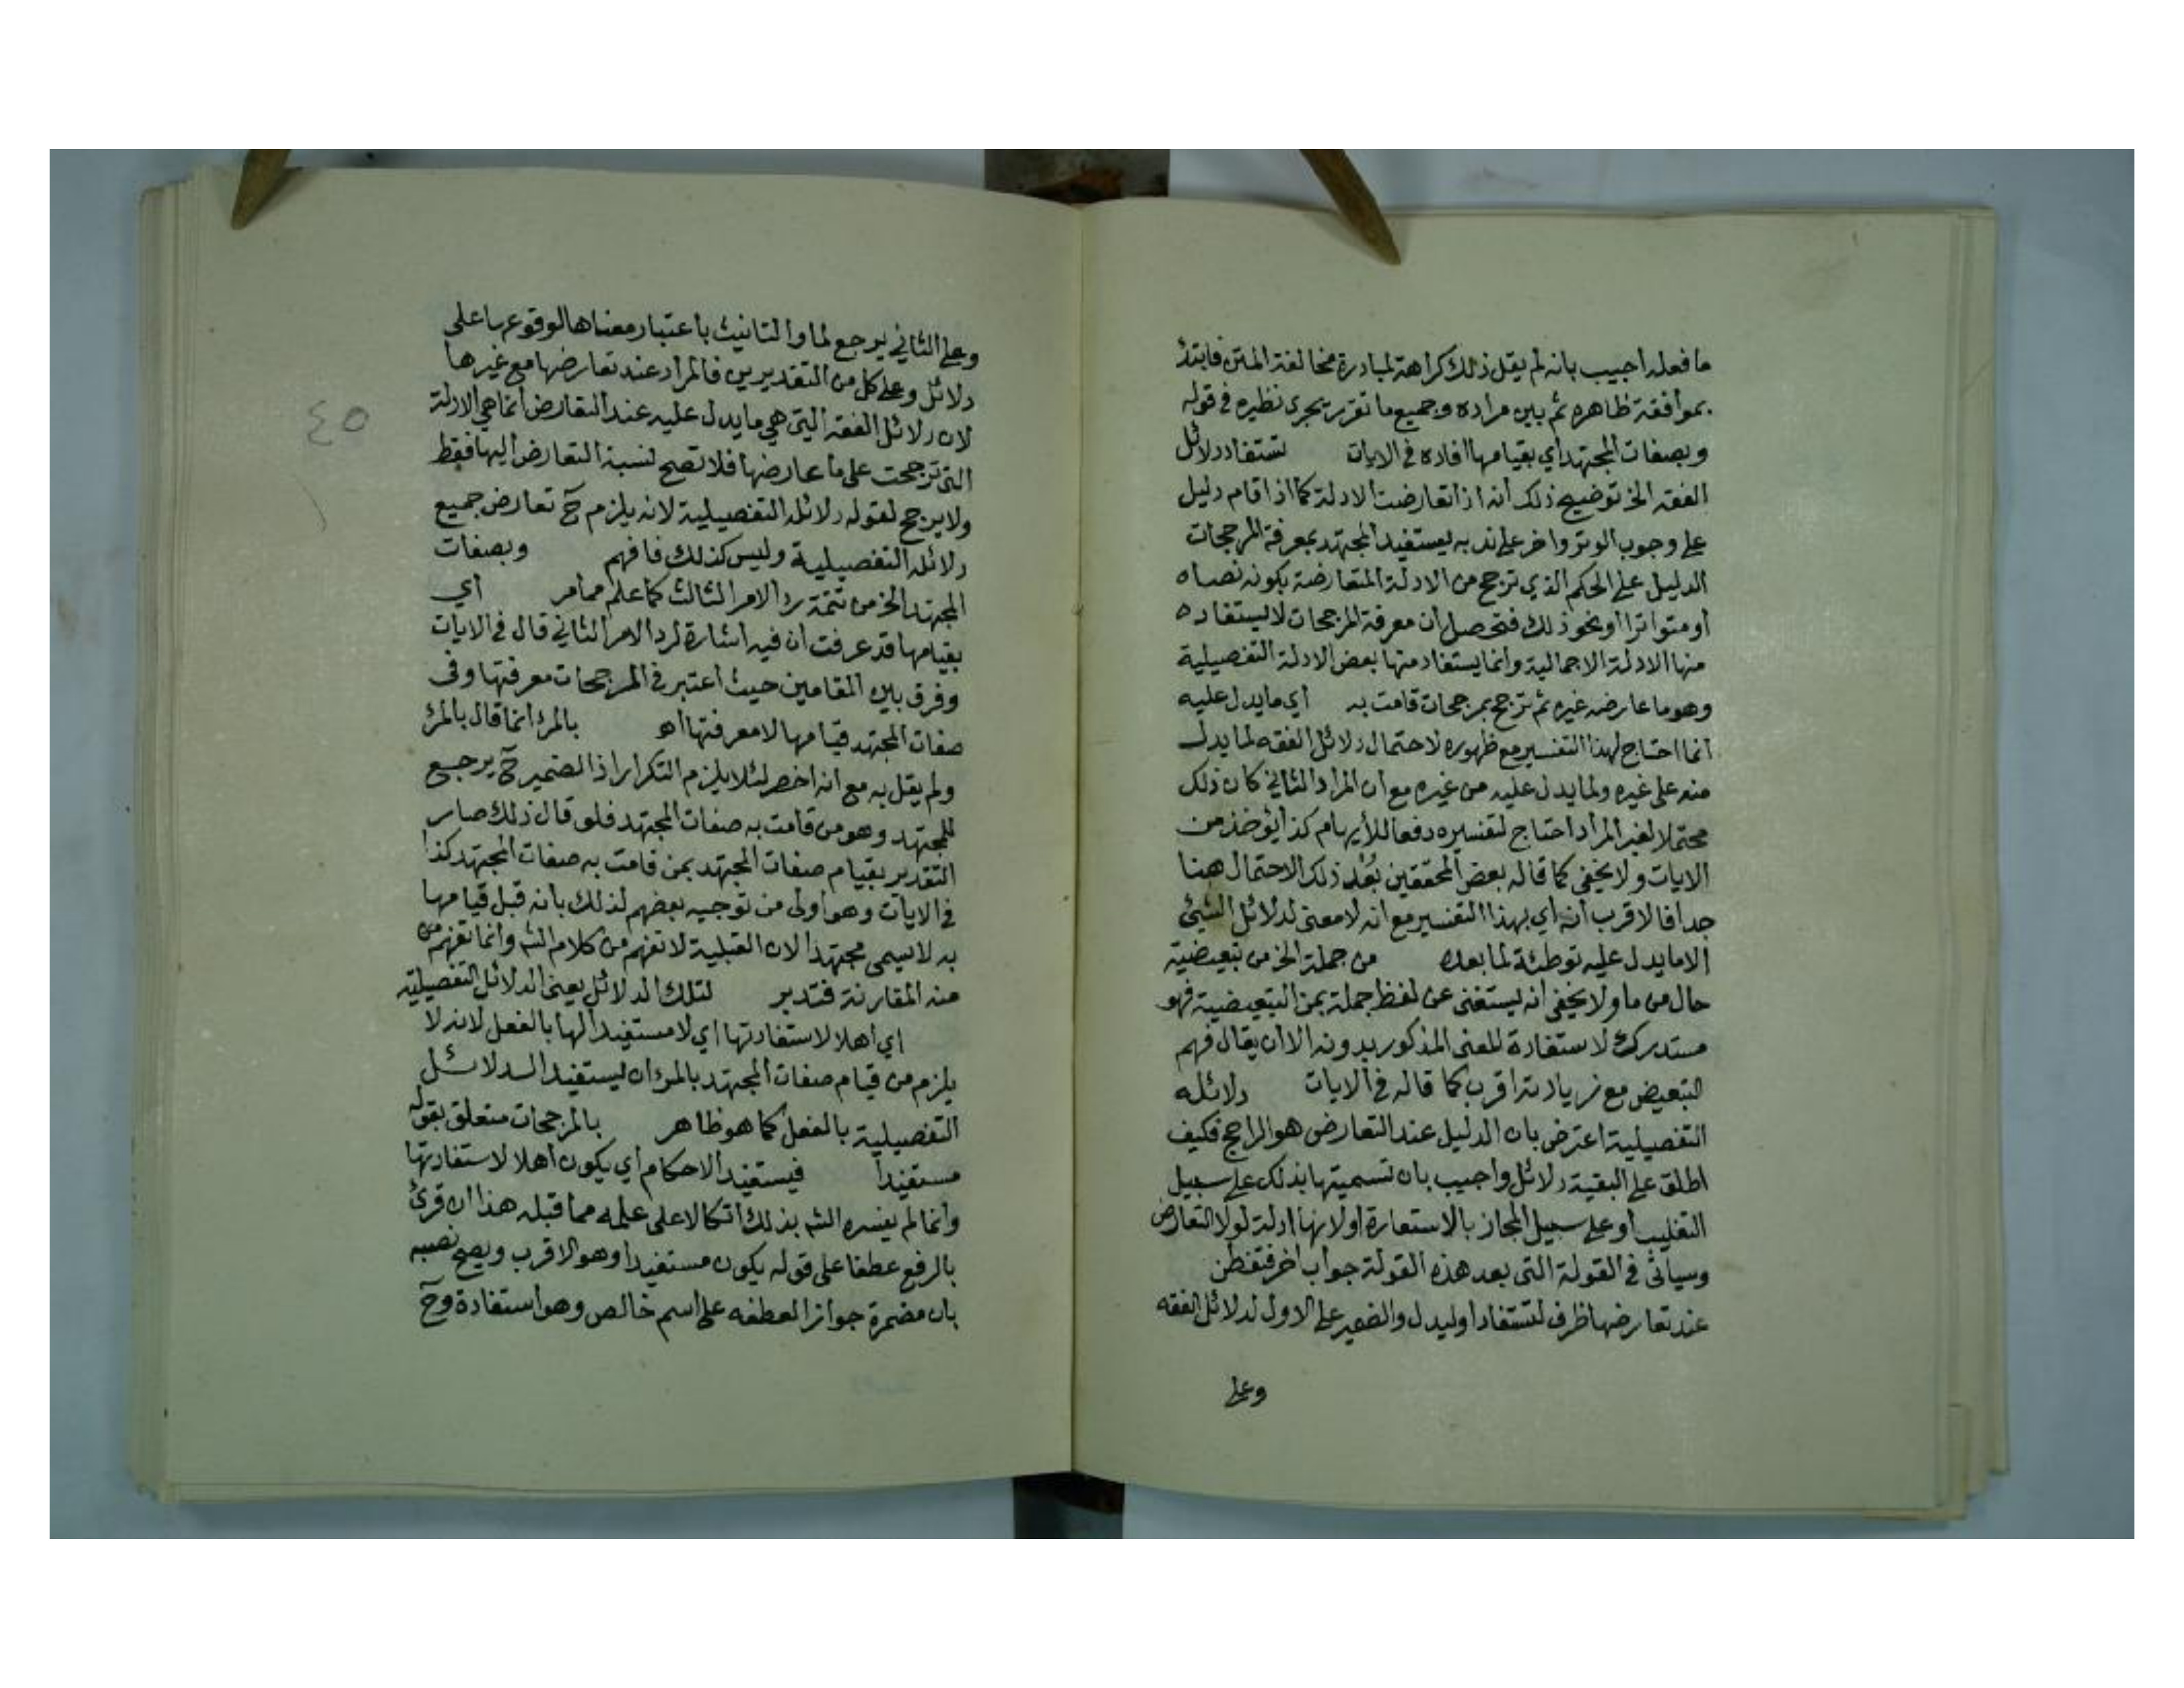 ما فعله اجيب بانه لم يقل ذلك كراهة لمبادرة مخالفة المتن فابتدئ
بموافقة ظاهره ثم بين مراده وجميع ما تقرر يجرى نظيره في قوله
وبصفات المجتهد أي بقيامها افاده في الايات تستفاد دلائل
الفقه الخ توضيح ذلك أنه اذا تعارضت الادلة كما اذا قام دليل
على وجوب الوتر واخر على ندبه يستفيد المجتهد بمعرفة المرجحات
الدليل على الحكم الذي ترجح من الادلة المتعارضة بكونه نصاه
أو متواترا أو نحو ذلك فتحصل أن معرفة المرجحات لا يستفاد ه
منها الادلة الاجمالية وانما يستفاد منها بعض الادلة التفصيلية
وهو ما عارضه غيره ثم ترجح بمرجحات قامت به أي ما يدل عليه
انما احتاج لهذا التفسير مع ظهوره لاحتمال دلائل الفقه لما يدل
منه على غيره ولما يدل عليه من غيره مع ان المراد الثاني كان ذلك
محتملا لغير المراد احتاج لتفسيره دفعا للأيهام كذا يؤخذ من
الايات ولا يخفى كما قاله بعض المحققين بُعْد ذلك الاحتمال هنا
جدا فالاقرب أنه أي بهذا التفسير مع انه لا معنى لدلائل الشيئ
الا ما يدل عليه توطئة لما بعده من جملة الخ من تبعيضية
حال من ما ولا يخفى انه يستغنى عن لفظ جملة بمن التبعيضية فهو
مستدرك لاستفادة المعنى المذكور بدونه الا ان يقال فهم
التبعيض مع زيادته اقرب كما قاله في الايات دلائله
التفصيلية اعترض بان الدليل عند التعارض هو الراجح فكيف
اطلق على البقية دلائل واجيب بان تسميتها بذلك على سبيل
التغليب او على سبيل المجاز بالاستعارة او لانها ادلة لولا التعارض
وسيأتى في القولة التى بعد هذه القولة جواب اخر فتفطن
عند تعارضها ظرف لتستفاد او ليدل والضمير على الاول لدلائل الفقه
وعلى
وعلى الثاني يرجع لما والتانيث باعتبار معناها لوقوعها على
دلائل وعلى كل من التقديرين فالمراد عند تعارضها مع غيرها
لان دلائل الفقه التي هي ما يدل عليه عند التعارض انما هي الادلة
التى ترجحت على ما عارضها فلا تصح نسبة التعارض اليها فقط
ولا يرجع لقوله دلائله التفصيلية لانه يلزم ح تعارض جميع
دلائله التفصيلية وليس كذلك فافهم وبصفات
المجتهد الخ من تتمة رد الامر الثالث كما علم مما مر أي
بقيامها قد عرفت ان فيه اشارة لرد الامر الثاني قال في الايات
وفرق بين المقامين حيث اعتبر في المرجحات معرفتها وفى
صفات المجتهد قيامها لا معرفتها اه بالمرء انما قال بالمرء
ولم يقل به مع انه اخصر لئلا يلزم التكرار اذ الضمير ح يرجع
للمجتهد وهو من قامت به صفات المجتهد فلو قال ذلك صار
التقدير بقيام صفات المجتهد بمن قامت به صفات المجتهد كذا
في الايات وهو أولى من توجيه بعضهم لذلك بانه قبل قيامها
به لا يسمى مجتهدا لان القبلية لا تفهم من كلام الشه وانما تفهم من
منه المقارنة فتدبر لتلك الدلائل يعنى الدلائل التفصيلية
اي اهلا لاستفادتها اي لا مستفيدا لها بالفعل لانه لا
يلزم من قيام صفات المجتهد بالمرء ان يستفيد الدلائل
التفصيلية بالفعل كما هو ظاهر بالمرجحات متعلق بقوله
مستفيدا فيستفيد الاحكام أي يكون اهلا لاستفادتها
وانما لم يفسره الشه بذلك اتكالا على علمه مما قبله هذا ان قرئ
بالرفع عطفا على قوله يكون مستفيدا وهو الاقرب ويصح نصبه
بان مضمرة جوازا لعطفه على اسم خالص وهو استفادة وح
٤٥